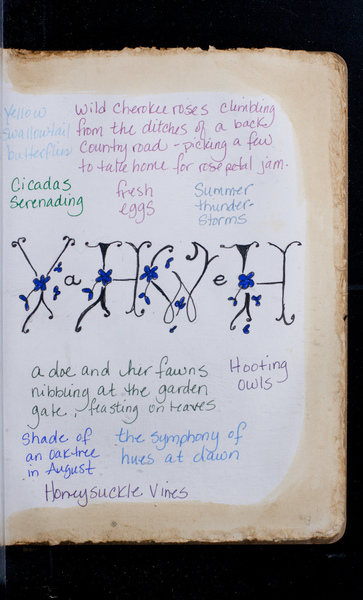 Yellow
swallowtail
butterflies
Wild Cherokee roses climbing
from the ditches of a back
Country road - picking a few
to take home for rose petal jam.
Cicadas
Serenading
fresh
eggs
Summer
thunder-
storms
YaHWeH
a doe and her fawns
nibbling at the garden
gate, feasting on leaves
Hooting
owls
Shade of
an oak tree
in August
the symphony of
hues at dawn
Honeysuckle Vines